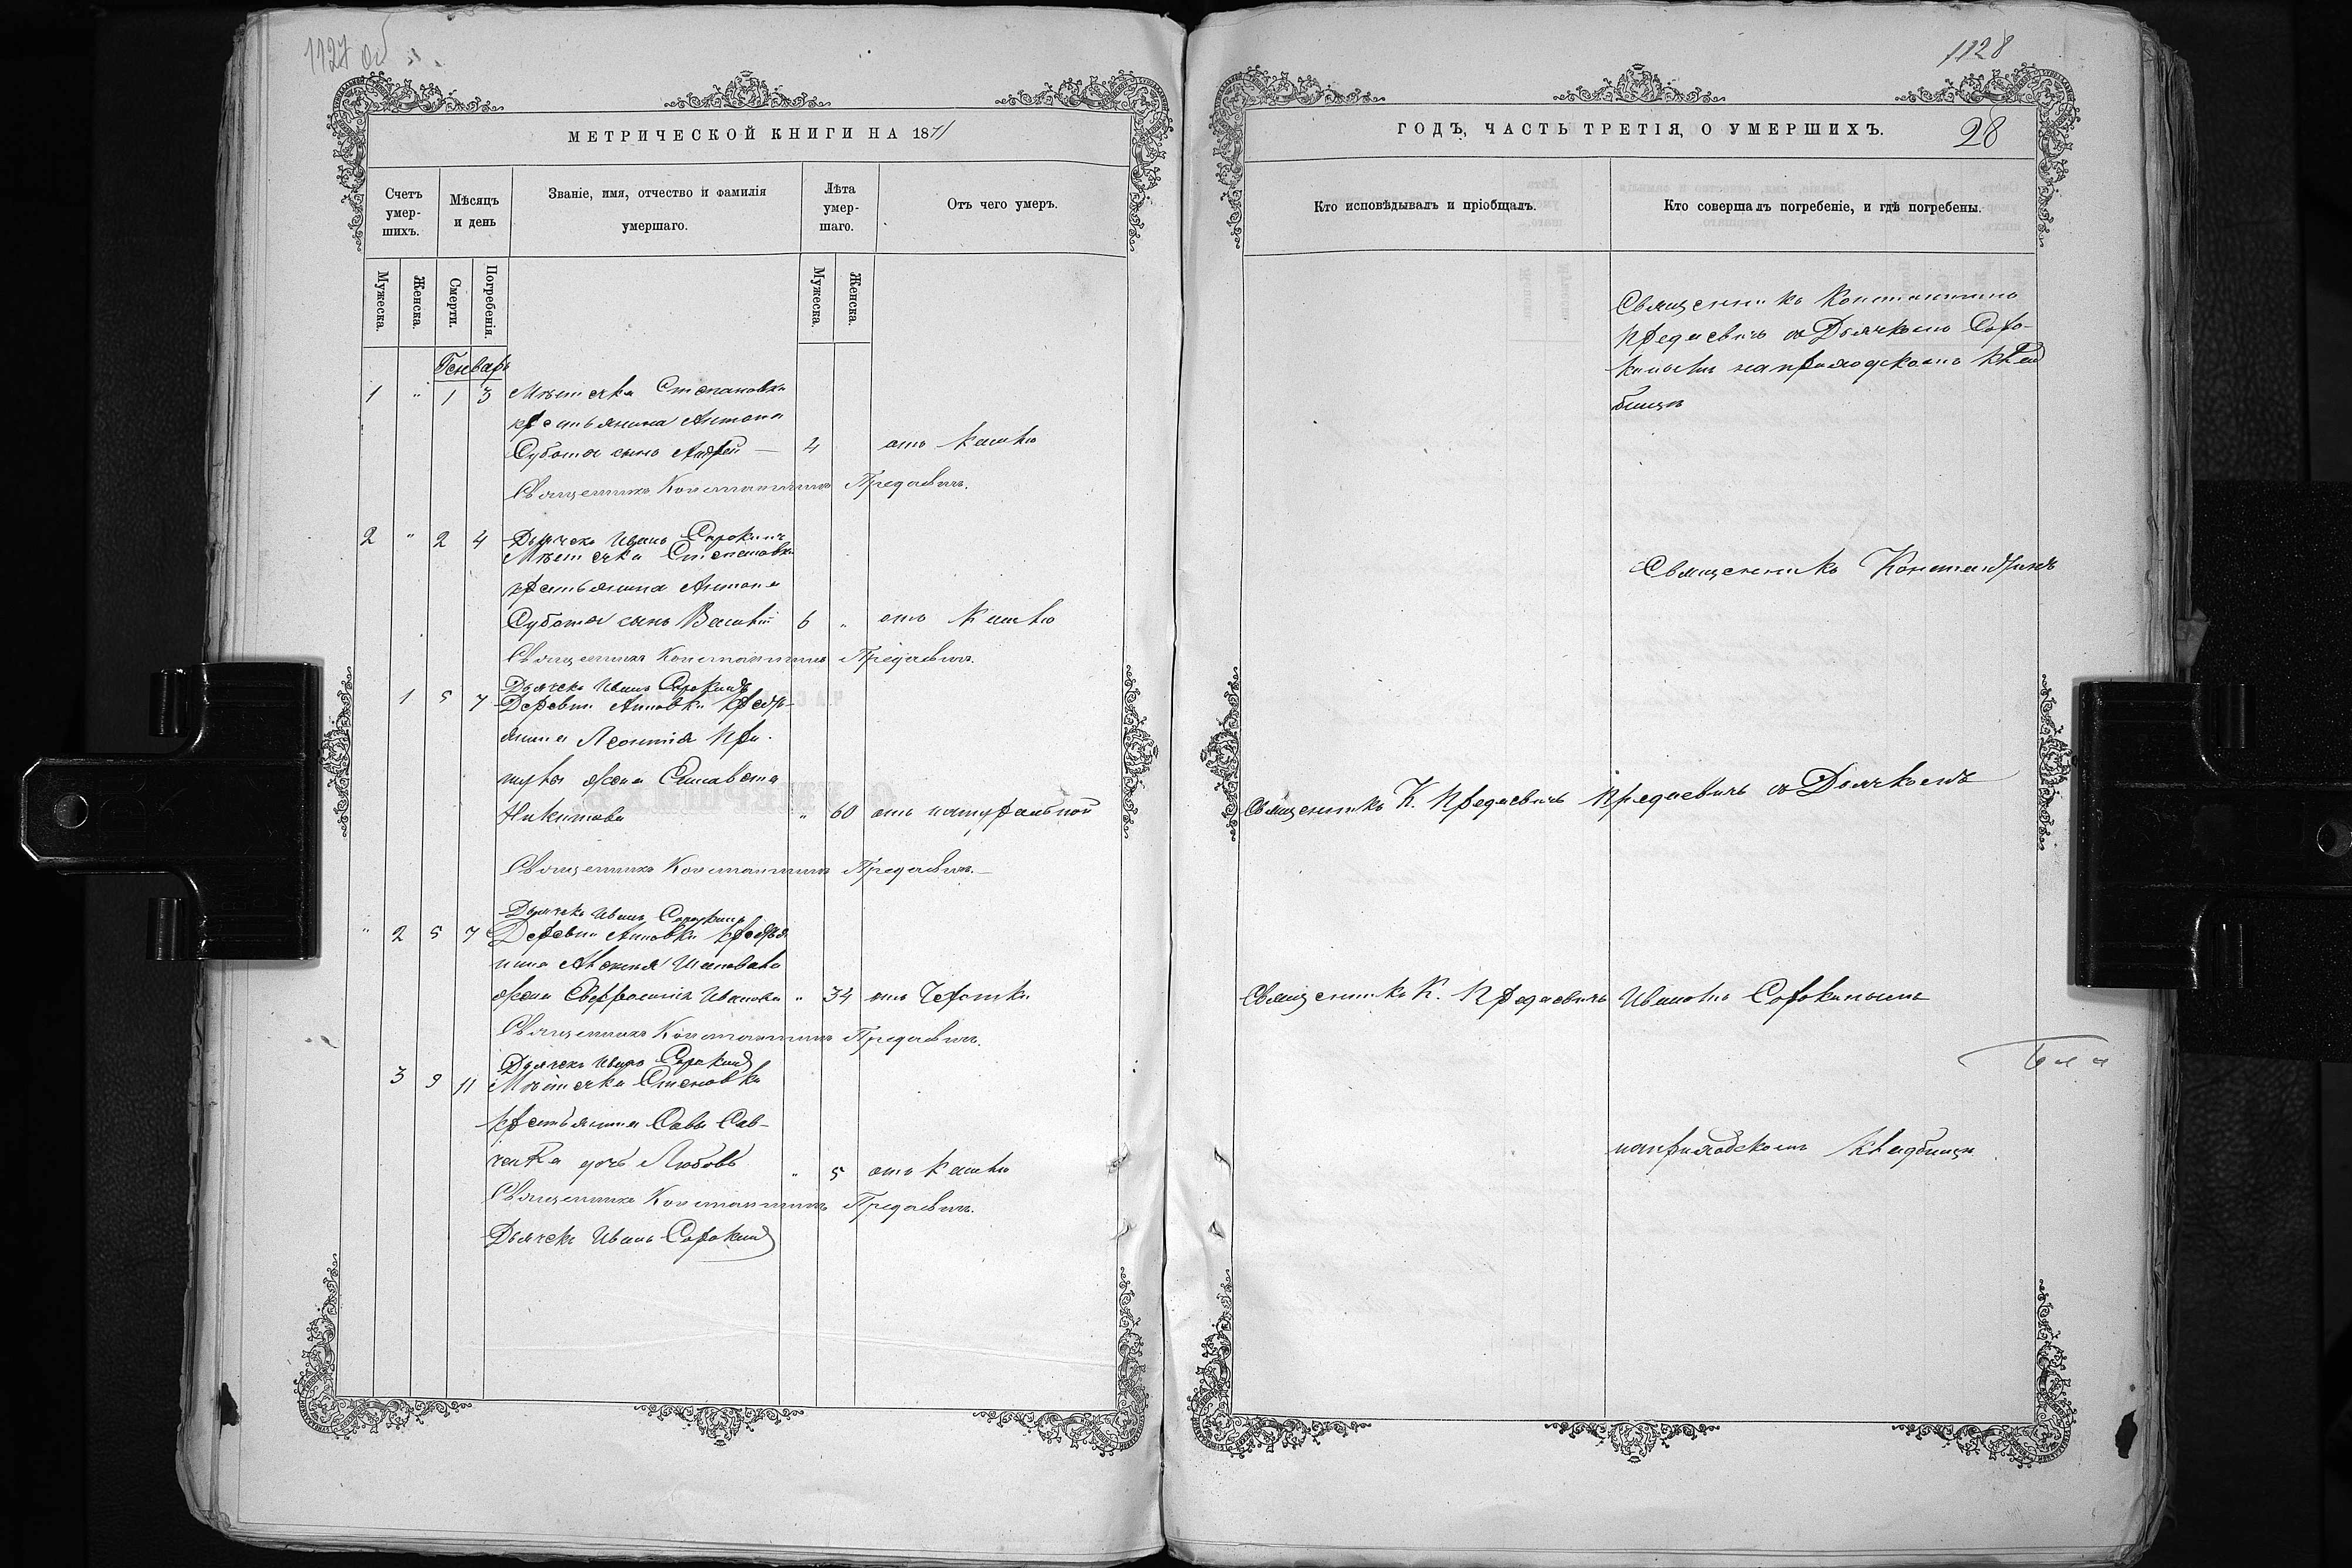 1127 об
МЕТРИЧЕСКОЙ КНИГИ НА 1871
Счетъ умер-шихъ.
Мѣсяцъ и день
Званіе, имя, отчество и фамилія умершаго.
Лѣта умер-шаго.
Отъ чего умеръ.
Мужеска.
Женска.
Смерти.
Погребенія.
Мужеска.
Женска.
Генварь
1 " 1 3 Мѣстечка Степановки
крестьянина Антона
Субота сынъ Андрей — 4 отъ кашлю
Священникъ Константинъ Предаевичъ.
Дьячекъ Иванъ Сорокинъ
2 " 2 4 Мѣстечка Степановки
крестьянина Антона
Субота сынъ Василій 6 " отъ кашлю
Священникъ Константинъ Предаевичъ.
Дьячекъ Иванъ Сорокинъ
1 5 7 Деревни Анновки крестья-
нина Леонтія При-
жена Елисавета
Никитова " 60 отъ натуральной
Священникъ Константинъ Предаевичъ.
Дьячекъ Иванъ Сорокинъ
" 2 5 7 Деревни Анновки крестья
нина Алексѣя Шаповала
жена Евфросинія Иванова " 34 отъ Чахотки
Священникъ Константинъ Предаевичъ.
Дьячекъ Иванъ Сорокинъ
3 9 11 Мѣстечка Степановки
крестьянина Савы Сав-
ченка дочь Любовь " 5 отъ кашлю
Священникъ Константинъ Предаевичъ.
Дьячекъ Иванъ Сорокинъ
1128
ГОДЪ, ЧАСТЬ ТРЕТІЯ, О УМЕРШИХЪ.
28
Кто исповѣдывалъ и пріобщалъ.
Кто совершалъ погребеніе, и гдѣ погребены.
Священникъ Константинъ
Предаевичъ съ Дьячкомъ Соро-
кинымъ на приходскомъ клад
бищѣ
Священникъ Константинъ
Священникъ К. Предаевичъ Предаевичъ съ Дьячкомъ
Священникъ К. Предаевичъ Иваномъ Сорокинымъ
на приходскомъ кладбищѣ